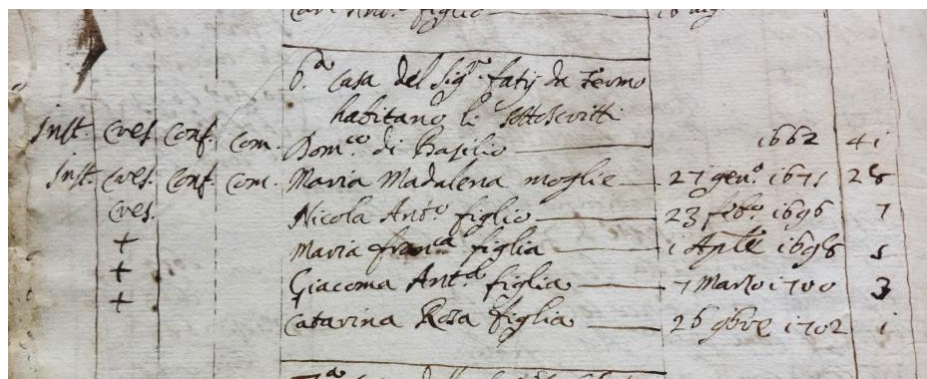 Ant.o figlio
6.a Casa del Sig.r fatij da Fermo
habitano li sottoscritti
Inst. Cres. Conf. Com. Dom.co di Basilio 1662 41
Inst. Cres. Conf. Com. Maria Madalena moglie 27 gen.o 1675 28
Cres. Nicola Ant.o figlio 23 feb.o 1696 7
+ Maria fran.ca figlia 1 Aple 1698 5
+ Giacoma Ant.a figlia 7 Marzo 1700 3
+ Catarina Rosa figlia 26 9bre 1702 1
7.a